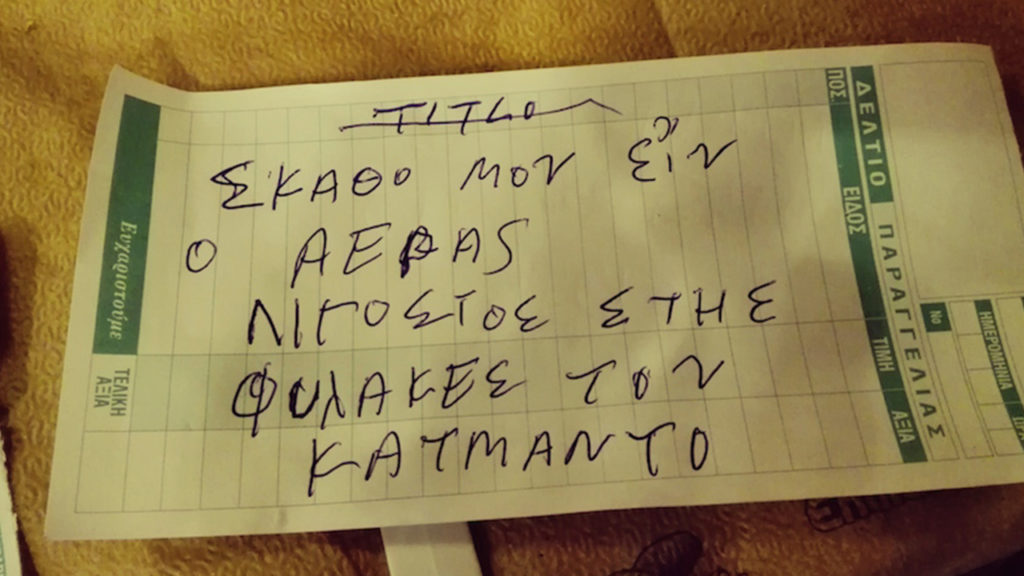 ΤΙΤΛΟ
ΣΚΑΘΟ ΜΟΥ
Ο ΑΕΡΑΣ
ΛΙΓΟΣΤΟΣ ΣΤΗΣ
ΦΥΛΑΚΕΣ ΤΟΥ
ΚΑΤΜΑΝΤΟ
ΔΕΛΤΙΟ ΠΑΡΑΓΓΕΛΙΑΣ
ΠΟΣ. ΕΙΔΟΣ ΤΙΜΗ ΑΞΙΑ
No
ΗΜΕΡΟΜΗΝΙΑ
Ευχαριστούμε
ΤΕΛΙΚΗ
ΑΞΙΑ